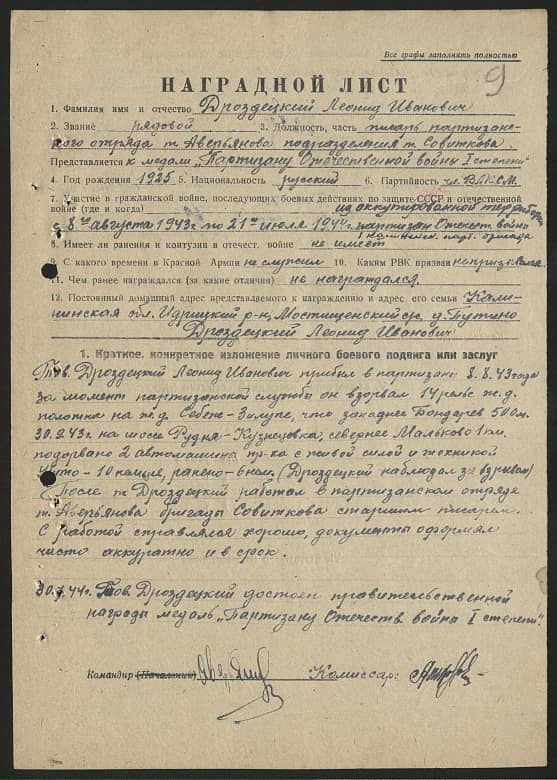 Все графы заполнять полностью
9
НАГРАДНОЙ ЛИСТ
1. Фамилия имя и отчество Дроздецкий Леонид Иванович
2. Звание рядовой 3. Должность, часть писарь партизанс-
кого отряда т. Аверьянова подразделения т. Совиткова.
Представляется к медали „Партизану Отечественной войны I степени"
4. Год рождения 1925 5. Национальность русский 6. Партийность чл. ВЛКСМ.
7. Участие в гражданской войне, последующих боевых действиях по защите СССР и отечественной
войне (где и когда) на оккупированной территории
с 8го августа 1943г по 21го июля 1944г. партизан Отечест война
парт. бригада
8. Имеет ли ранения и контузии в отечест. войне не имеет
9. С какого времени в Красной Армии не служил 10. Каким РВК призван не призывался
11. Чем ранее награждался (за какие отличия) не награждался.
12. Постоянный домашний адрес представляемого к награждению и адрес его семьи Кали-
нинская обл. Идрицкий р-н, Мостищенский с/с д. Путино
Дроздецкий Леонид Иванович
1. Краткое, конкретное изложение личного боевого подвига или заслуг
Тов. Дроздецкий Леонид Иванович прибыл в партизаны 8.8.43 года
За момент партизанской службы он взорвал 14 рельс ж.д.
полотна на ж.д. Себеж-Зилупе, что западнее Бондарев 500 м.
30.9.43г. на шоссе Рудня-Кузнецовка, севернее Мальково 1 км.
подорвано 2 автомашины пр-ка с живой силой и техникой
убито - 10 немцев, ранено - 6 чел. (Дроздецкий наблюдал за взрывом)
После т. Дроздецкий работал в партизанском отряде
т. Аверьянова бригады Совиткова старшим писарем.
С работой справлялся хорошо, документы оформлял
чисто аккуратно и в срок.
30.7.44г. Тов. Дроздецкий достоен правительственной
награды медаль „Партизану Отечеств война I степени".
Командир (Начальник) Комиссар: